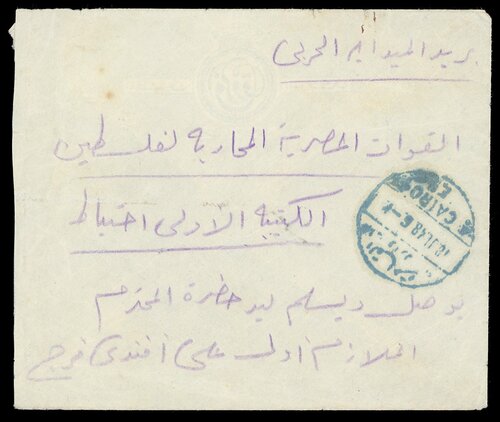 بريد الميدان الحربى
القوات المصرية المحاربه لفلسطين
الكتيبه الاولى احتياط
CAIRO
48 6-
يوصل ويسلم ليد حضرة المحترم
الملازم اول على افندى فرج